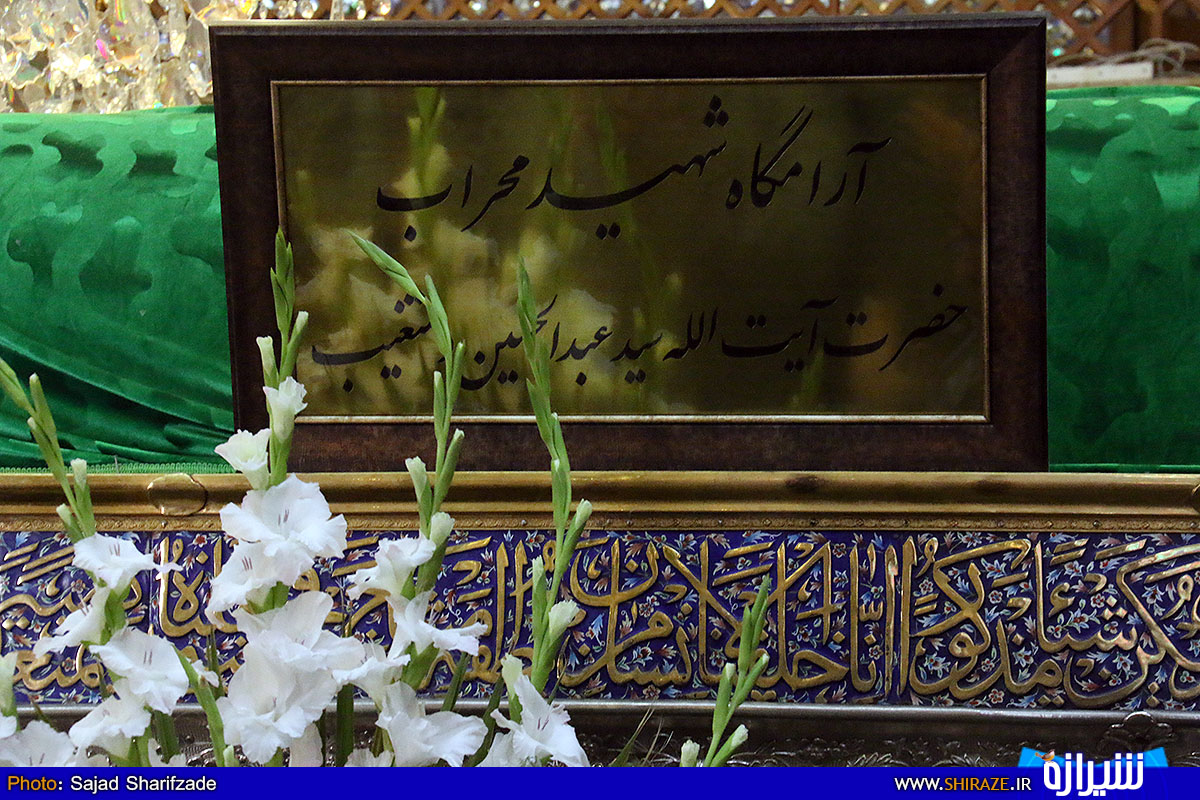 آرامگاه شهید محراب
حضرت آیت الله سید عبدالحسین دستغیب
لم یکن شیئا مذکورا انا خلقنا الانسان من نطفة امشاج
Photo: Sajad Sharifzade
WWW.SHIRAZE.IR
شیرازه